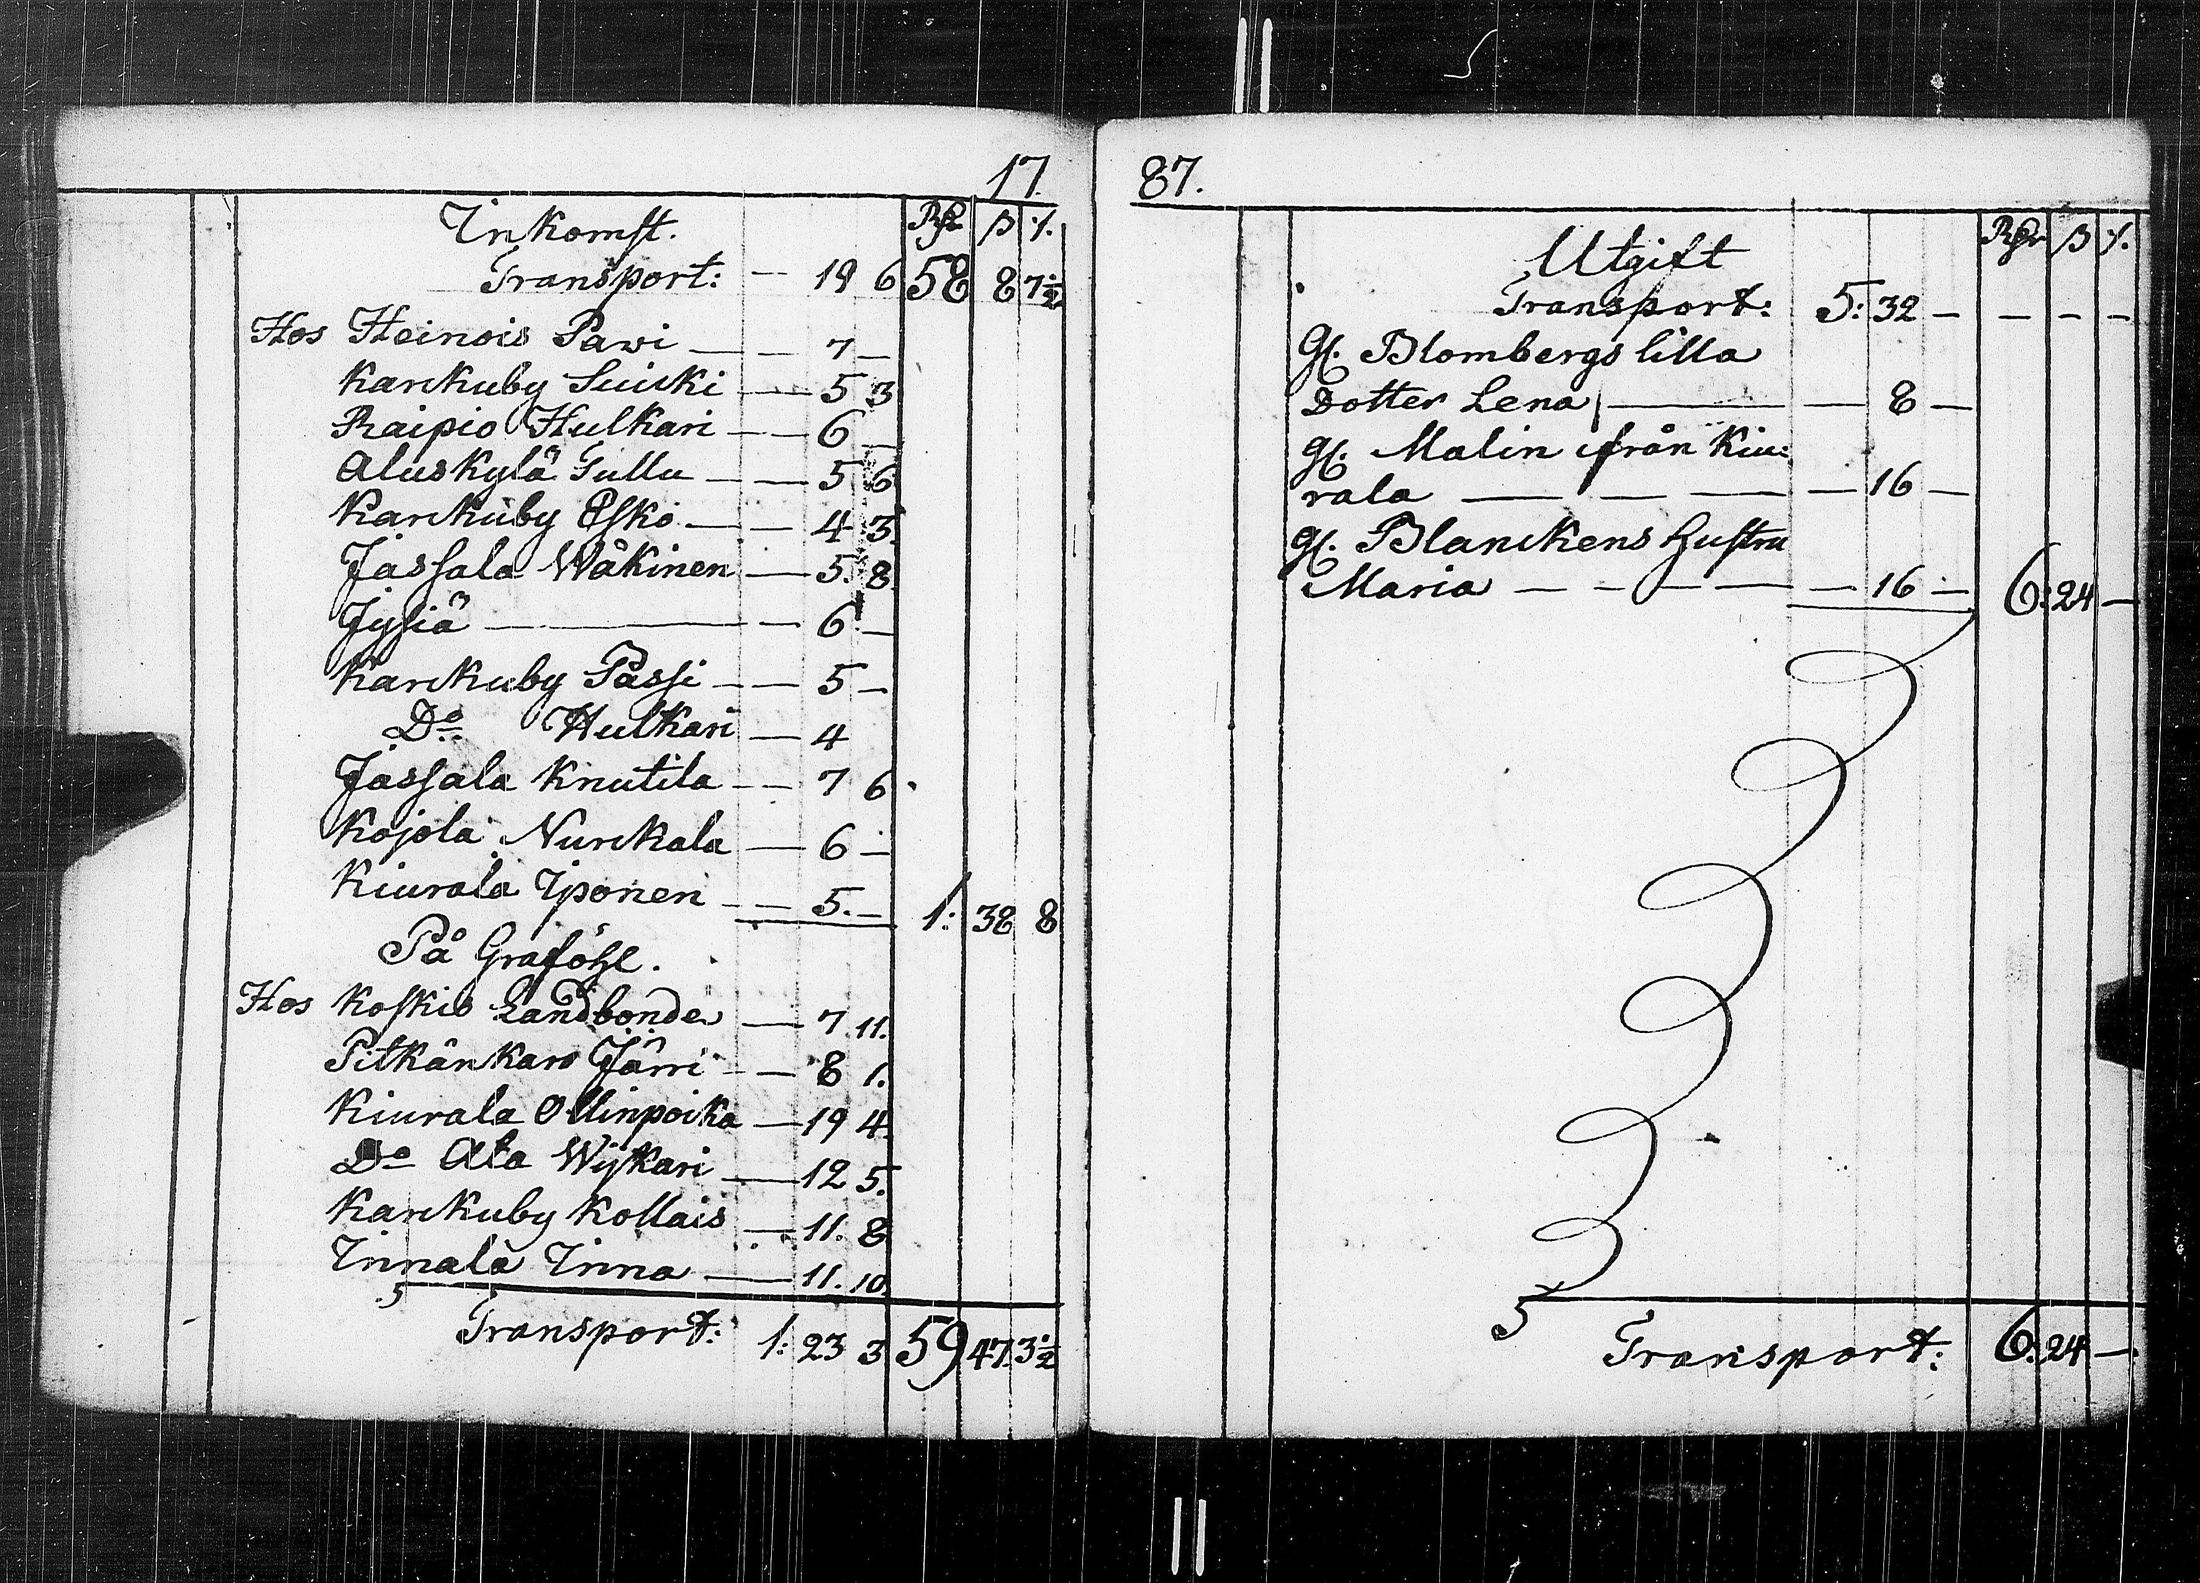 17
Inkomst. Rdr ß /.
Transport: — 19 6 58 8 7½
Hos Heinois Pawi — — 7 —
Karkuby Suicki — — 5 3
Raipio Hulkari — — 6 —
Aluskylä Gullu — — 5 6
Karkuby Esko — — 4 3.
Jassala Wåkinen — 5. 8.
Jysiä — — 6 —
Karkuby Passi — — 5 —
Do Hulkari — 4
Jassala Knutila — — 7 6.
Kojola Nurkala — 6 —
Kiurala Iponen — — 5. — 1: 38 8
På Graföhl.
Hos Koskis Landbonde — 7. 11.
Pitkänkaro Järri — — 8 1.
Kiurala Ollinpoika — 19 4.
Do Ala Wijkari — 12 5.
Karkuby Kollais — 11. 8
Innala Inna — 11. 10.
Transport: 1: 23 3 59 47. 3½
87.
Utgift Rdr ß /.
Transport: 5: 32 — — — —
Gf. Blombergs lilla
Dotter Lena — — 8 —
gf. Malin ifrån Kiu:
rala — — — — 16 —
gf. Blanckens Hustru
Maria — — — — — 16 — 6: 24 —
Transport: 6: 24 —